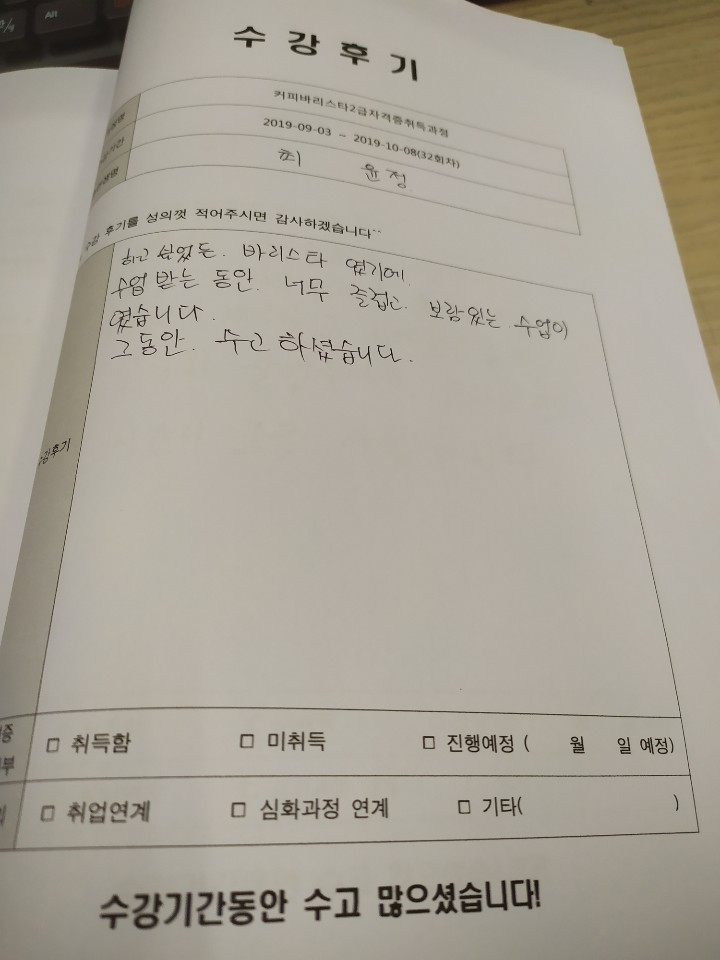 수 강 후 기
커피바리스타2급자격증취득과정
2019-09-03 ~ 2019-10-08(32회차)
최 윤정
후기를 성의껏 적어주시면 감사하겠습니다~~
하고 싶었든. 바리스타 였기에.
수업 받는 동안. 너무 즐겁고. 보람있는. 수업이
였습니다.
그동안. 수고 하셨습니다.
수강후기
□ 취득함 □ 미취득 □ 진행예정 ( 월 일 예정)
□ 취업연계 □ 심화과정 연계 □ 기타( )
수강기간동안 수고 많으셨습니다!